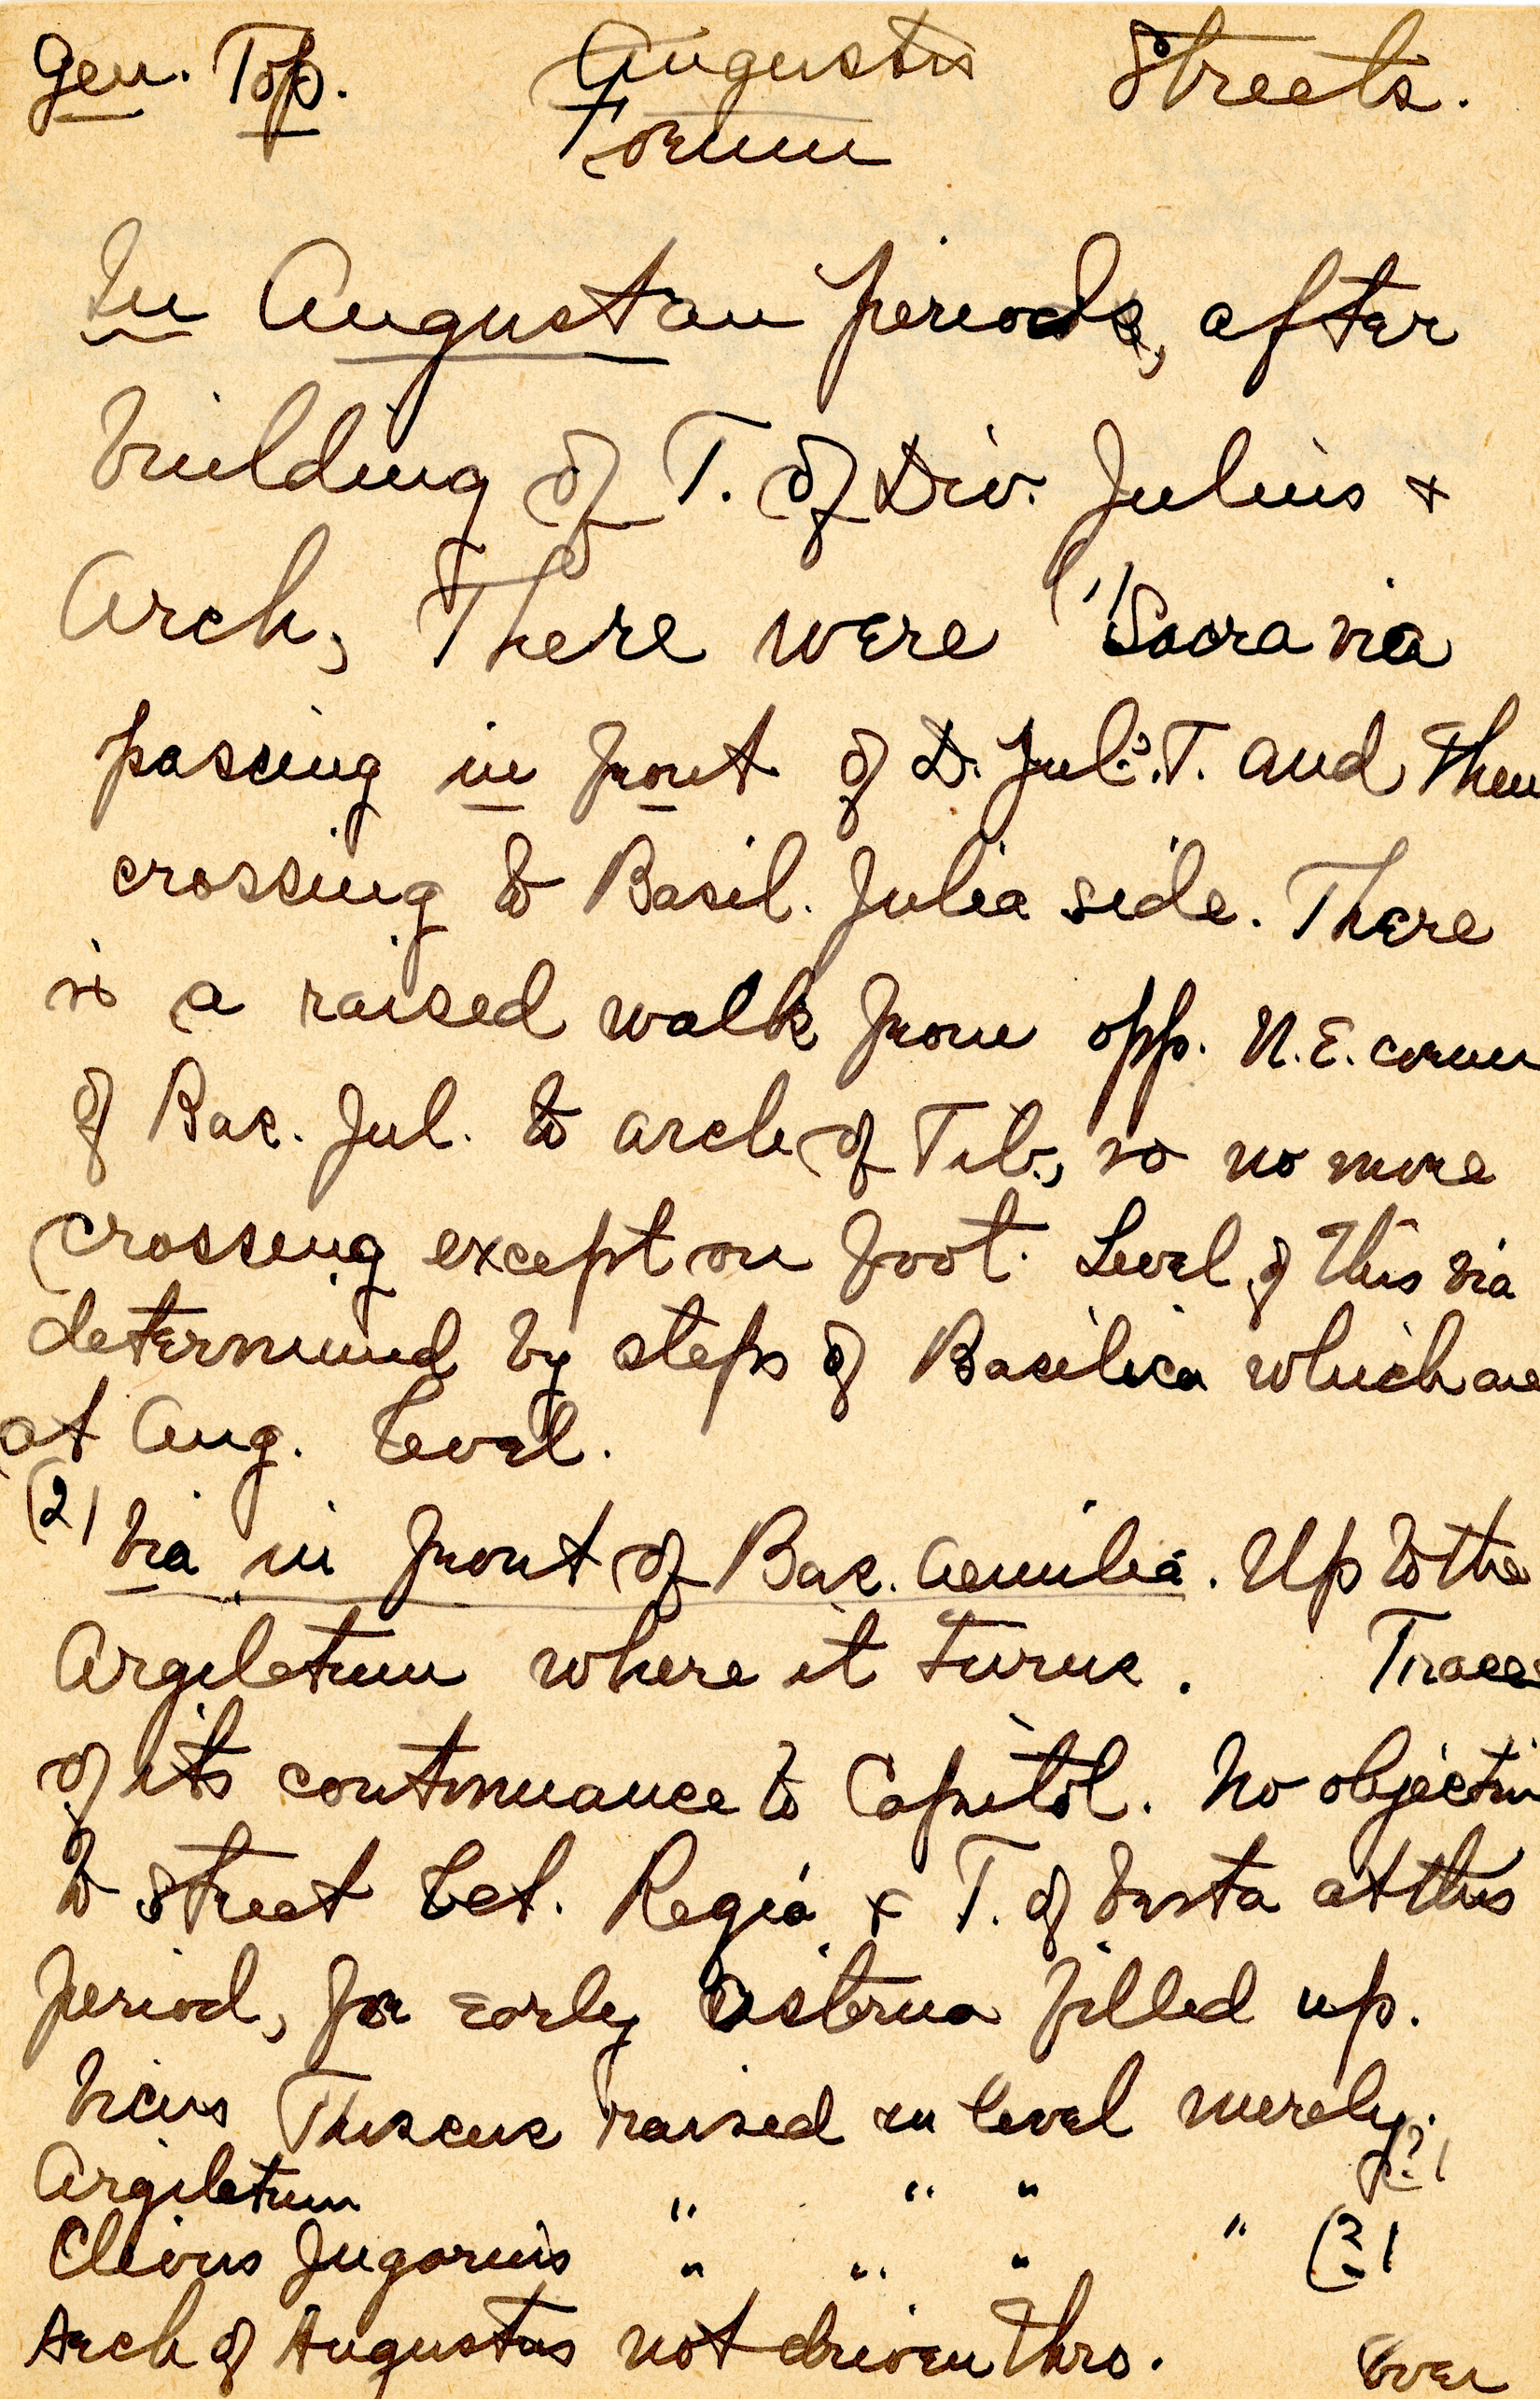 Gen. Top. Augustus Streets.
Forum
In Augustan period, after
building of T. of Div. Julius +
Arch, There were (1) Sacra via
passing in front of D. Jul.'s T. and then
crossing to Basil. Julia side. There
is a raised walk from opp. N.E. corner
of Bas. Jul. to arch of Tib., so no more
crossing except on foot. Level of this via
determined by steps of Basilica which are
at Aug. level.
(2) Via in front of Bas. Aemilia. Up to the
Argiletum where it turns. Traces
of its continuance to Capitol. No objection
to street bet. Regia + T. of Vesta at this
period, for early cisterna filled up.
Vicus Thuscus raised in level merely.
Argiletum " " " (?)
Clivus Jugarius " " " " (?)
Arch of Augustus not driven thro. Over